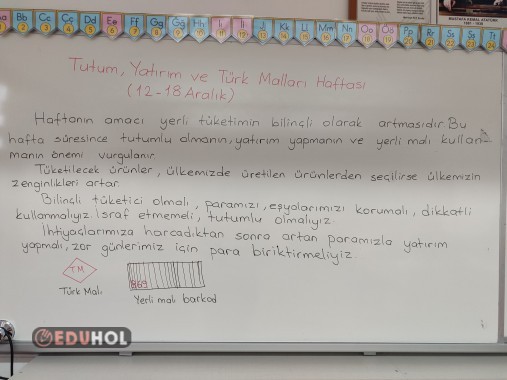 Bb Cc Çç Dd Ee Ff Gg Ğğ Hh Iı İi Jj Kk Ll Mm Nn Oo Öö Pp Rr Ss Şş Tt
MUSTAFA KEMAL ATATÜRK
1881 - 1938
Tutum, Yatırım ve Türk Malları Haftası
(12-18 Aralık)
Haftanın amacı yerli tüketimin bilinçli olarak artmasıdır. Bu
hafta süresince tutumlu olmanın, yatırım yapmanın ve yerli malı kullan-
manın önemi vurgulanır.
Tüketilecek ürünler, ülkemizde üretilen ürünlerden seçilirse ülkemizin
zenginlikleri artar.
Bilinçli tüketici olmalı, paramızı, eşyalarımızı korumalı, dikkatli
kullanmalıyız. İsraf etmemeli, tutumlu olmalıyız.
İhtiyaçlarımıza harcadıktan sonra artan paramızla yatırım
yapmalı, zor günlerimiz için para biriktirmeliyiz.
TM
869
Türk Malı
Yerli malı barkod
EDUHOL